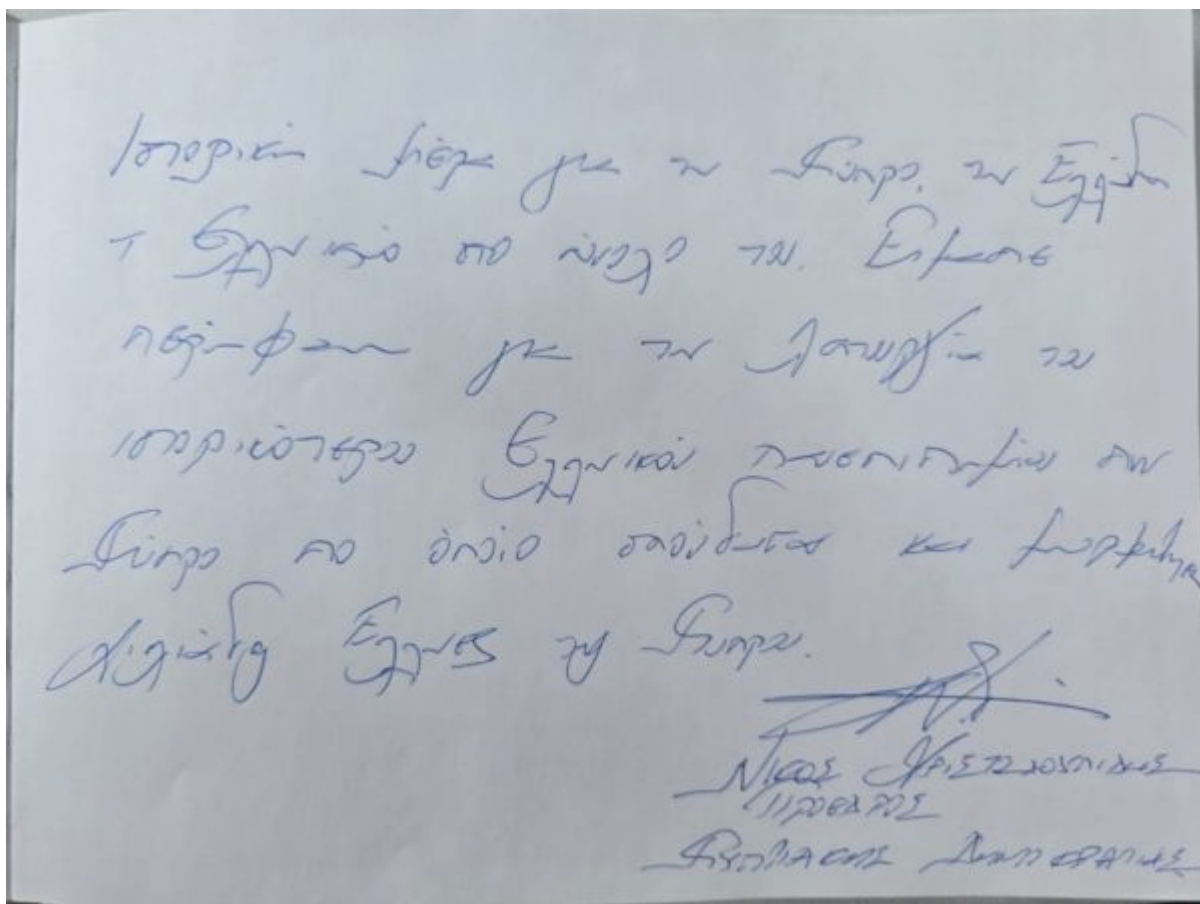 Ιστορική μέρα για την Κύπρο, την Ελλάδα
τον Ελληνισμό στο σύνολο του. Είμαστε
περήφανοι για την λειτουργία του
ιστορικότερου Ελληνικού πανεπιστημίου στην
Κύπρο στο όποιο σπούδασαν και
χιλιάδες Έλληνες της Κύπρου.
ΝΙΚΟΣ ΧΡΙΣΤΟΔΟΥΛΙΔΗΣ
ΠΡΟΕΔΡΟΣ
ΚΥΠΡΙΑΚΗΣ ΔΗΜΟΚΡΑΤΙΑΣ